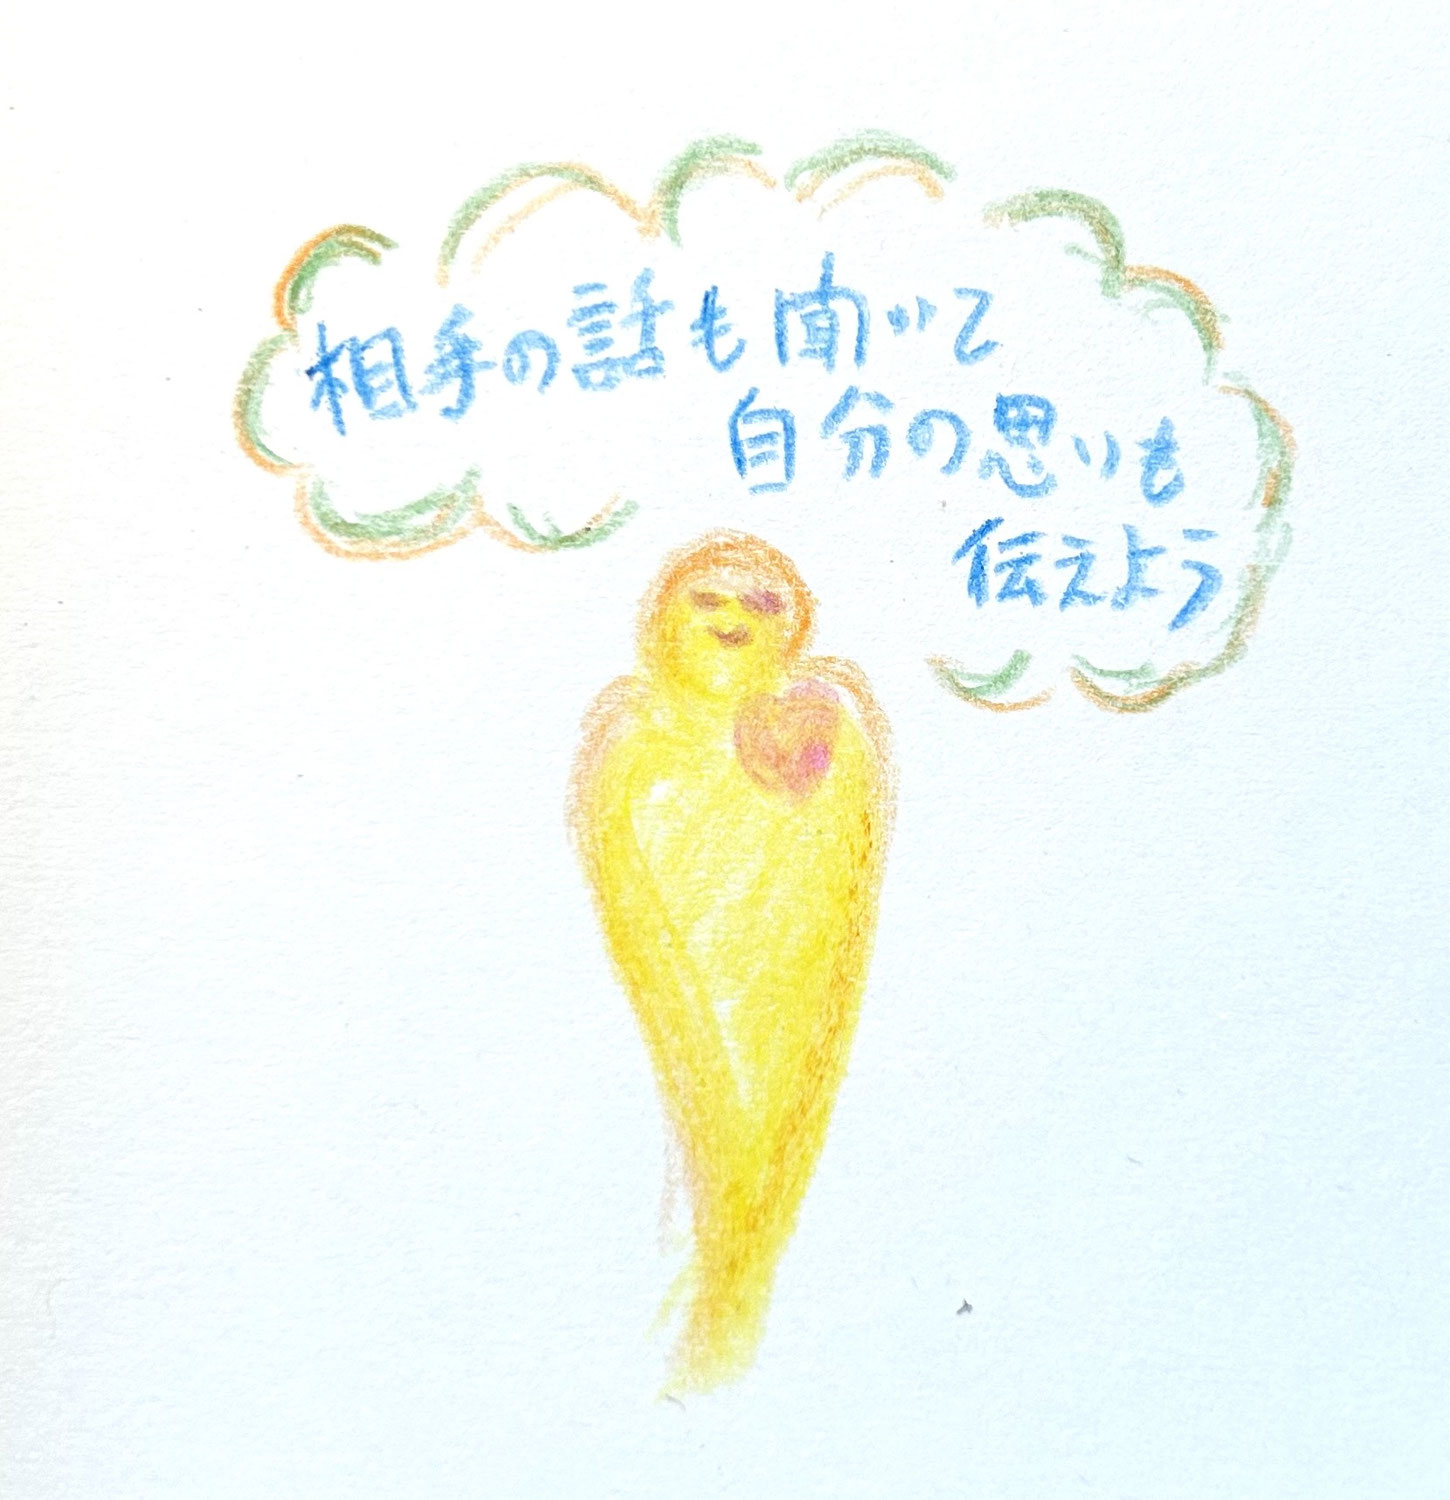 相手の話も聞いて
自分の思いも
伝えよう